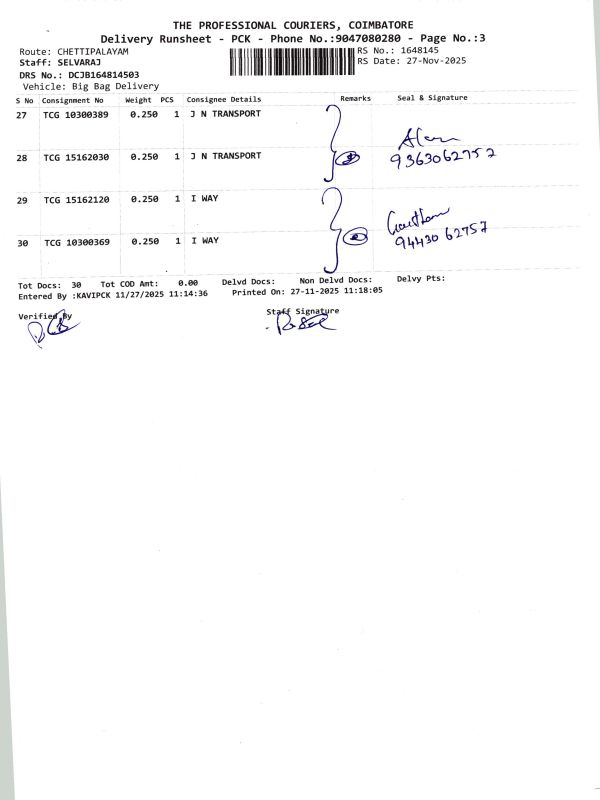 THE PROFESSIONAL COURIERS, COIMBATORE
Delivery Runsheet - PCK - Phone No.:9047080280 - Page No.:3
Route: CHETTIPALAYAM RS No.: 1648145
Staff: SELVARAJ RS Date: 27-Nov-2025
DRS No.: DCJB164814503
Vehicle: Big Bag Delivery
S No Consignment No Weight PCS Consignee Details Remarks Seal & Signature
27 TCG 10300389 0.250 1 J N TRANSPORT
28 TCG 15162030 0.250 1 J N TRANSPORT
9363062752
29 TCG 15162120 0.250 1 I WAY
Gowtham
94430 62757
30 TCG 10300369 0.250 1 I WAY
Tot Docs: 30 Tot COD Amt: 0.00 Delvd Docs: Non Delvd Docs: Delvy Pts:
Entered By :KAVIPCK 11/27/2025 11:14:36 Printed On: 27-11-2025 11:18:05
Verified By Staff Signature